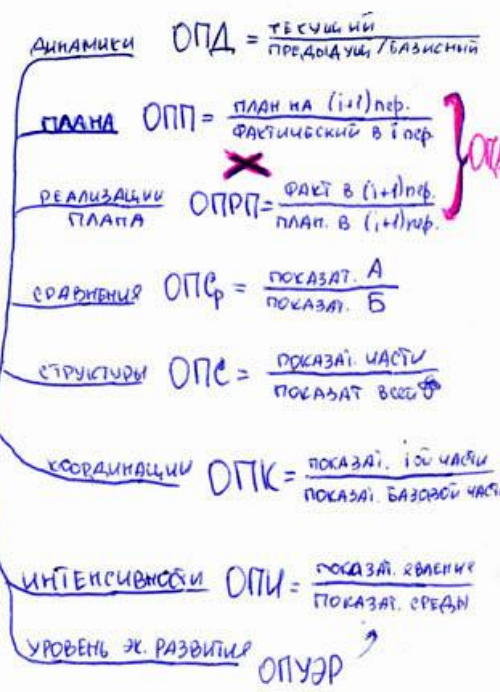 ДИНАМИКИ ОПД = ТЕКУЩИЙ / ПРЕДЫДУЩ/БАЗИСНЫЙ
ПЛАНА ОПП = ПЛАН НА (i+1) ПЕР. / ФАКТИЧЕСКИЙ В i ПЕР
РЕАЛИЗАЦИИ ПЛАНА ОПРП = ФАКТ В (i+1) ПЕР. / ПЛАН. В (i+1) ПЕР.
СРАВНЕНИЯ ОПСр = ПОКАЗАТ. А / ПОКАЗАТ. Б
СТРУКТУРЫ ОПС = ПОКАЗАТ. ЧАСТИ / ПОКАЗАТ ВСЕЙ
КООРДИНАЦИИ ОПК = ПОКАЗАТ. iОЙ ЧАСТИ / ПОКАЗАТ. БАЗОВОЙ
ИНТЕНСИВНОСТИ ОПИ = ПОКАЗАТ. ЯВЛЕНИЯ / ПОКАЗАТ. СРЕДЫ
УРОВЕНЬ ЭК. РАЗВИТИЯ ОПУЭР